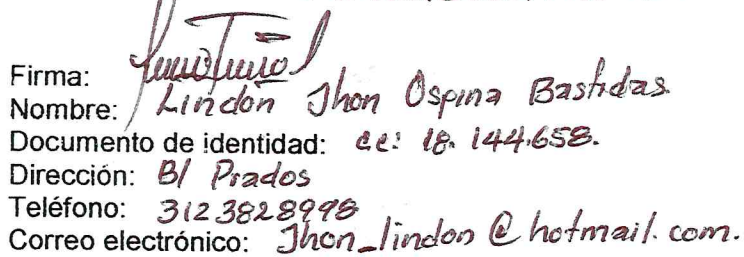 Firma:
Nombre: Lindon Jhon Ospina Bastidas.
Documento de identidad: cc: 18.144.658.
Dirección: B/ Prados
Teléfono: 3123828998
Correo electrónico: Jhon_lindon@hotmail.com.